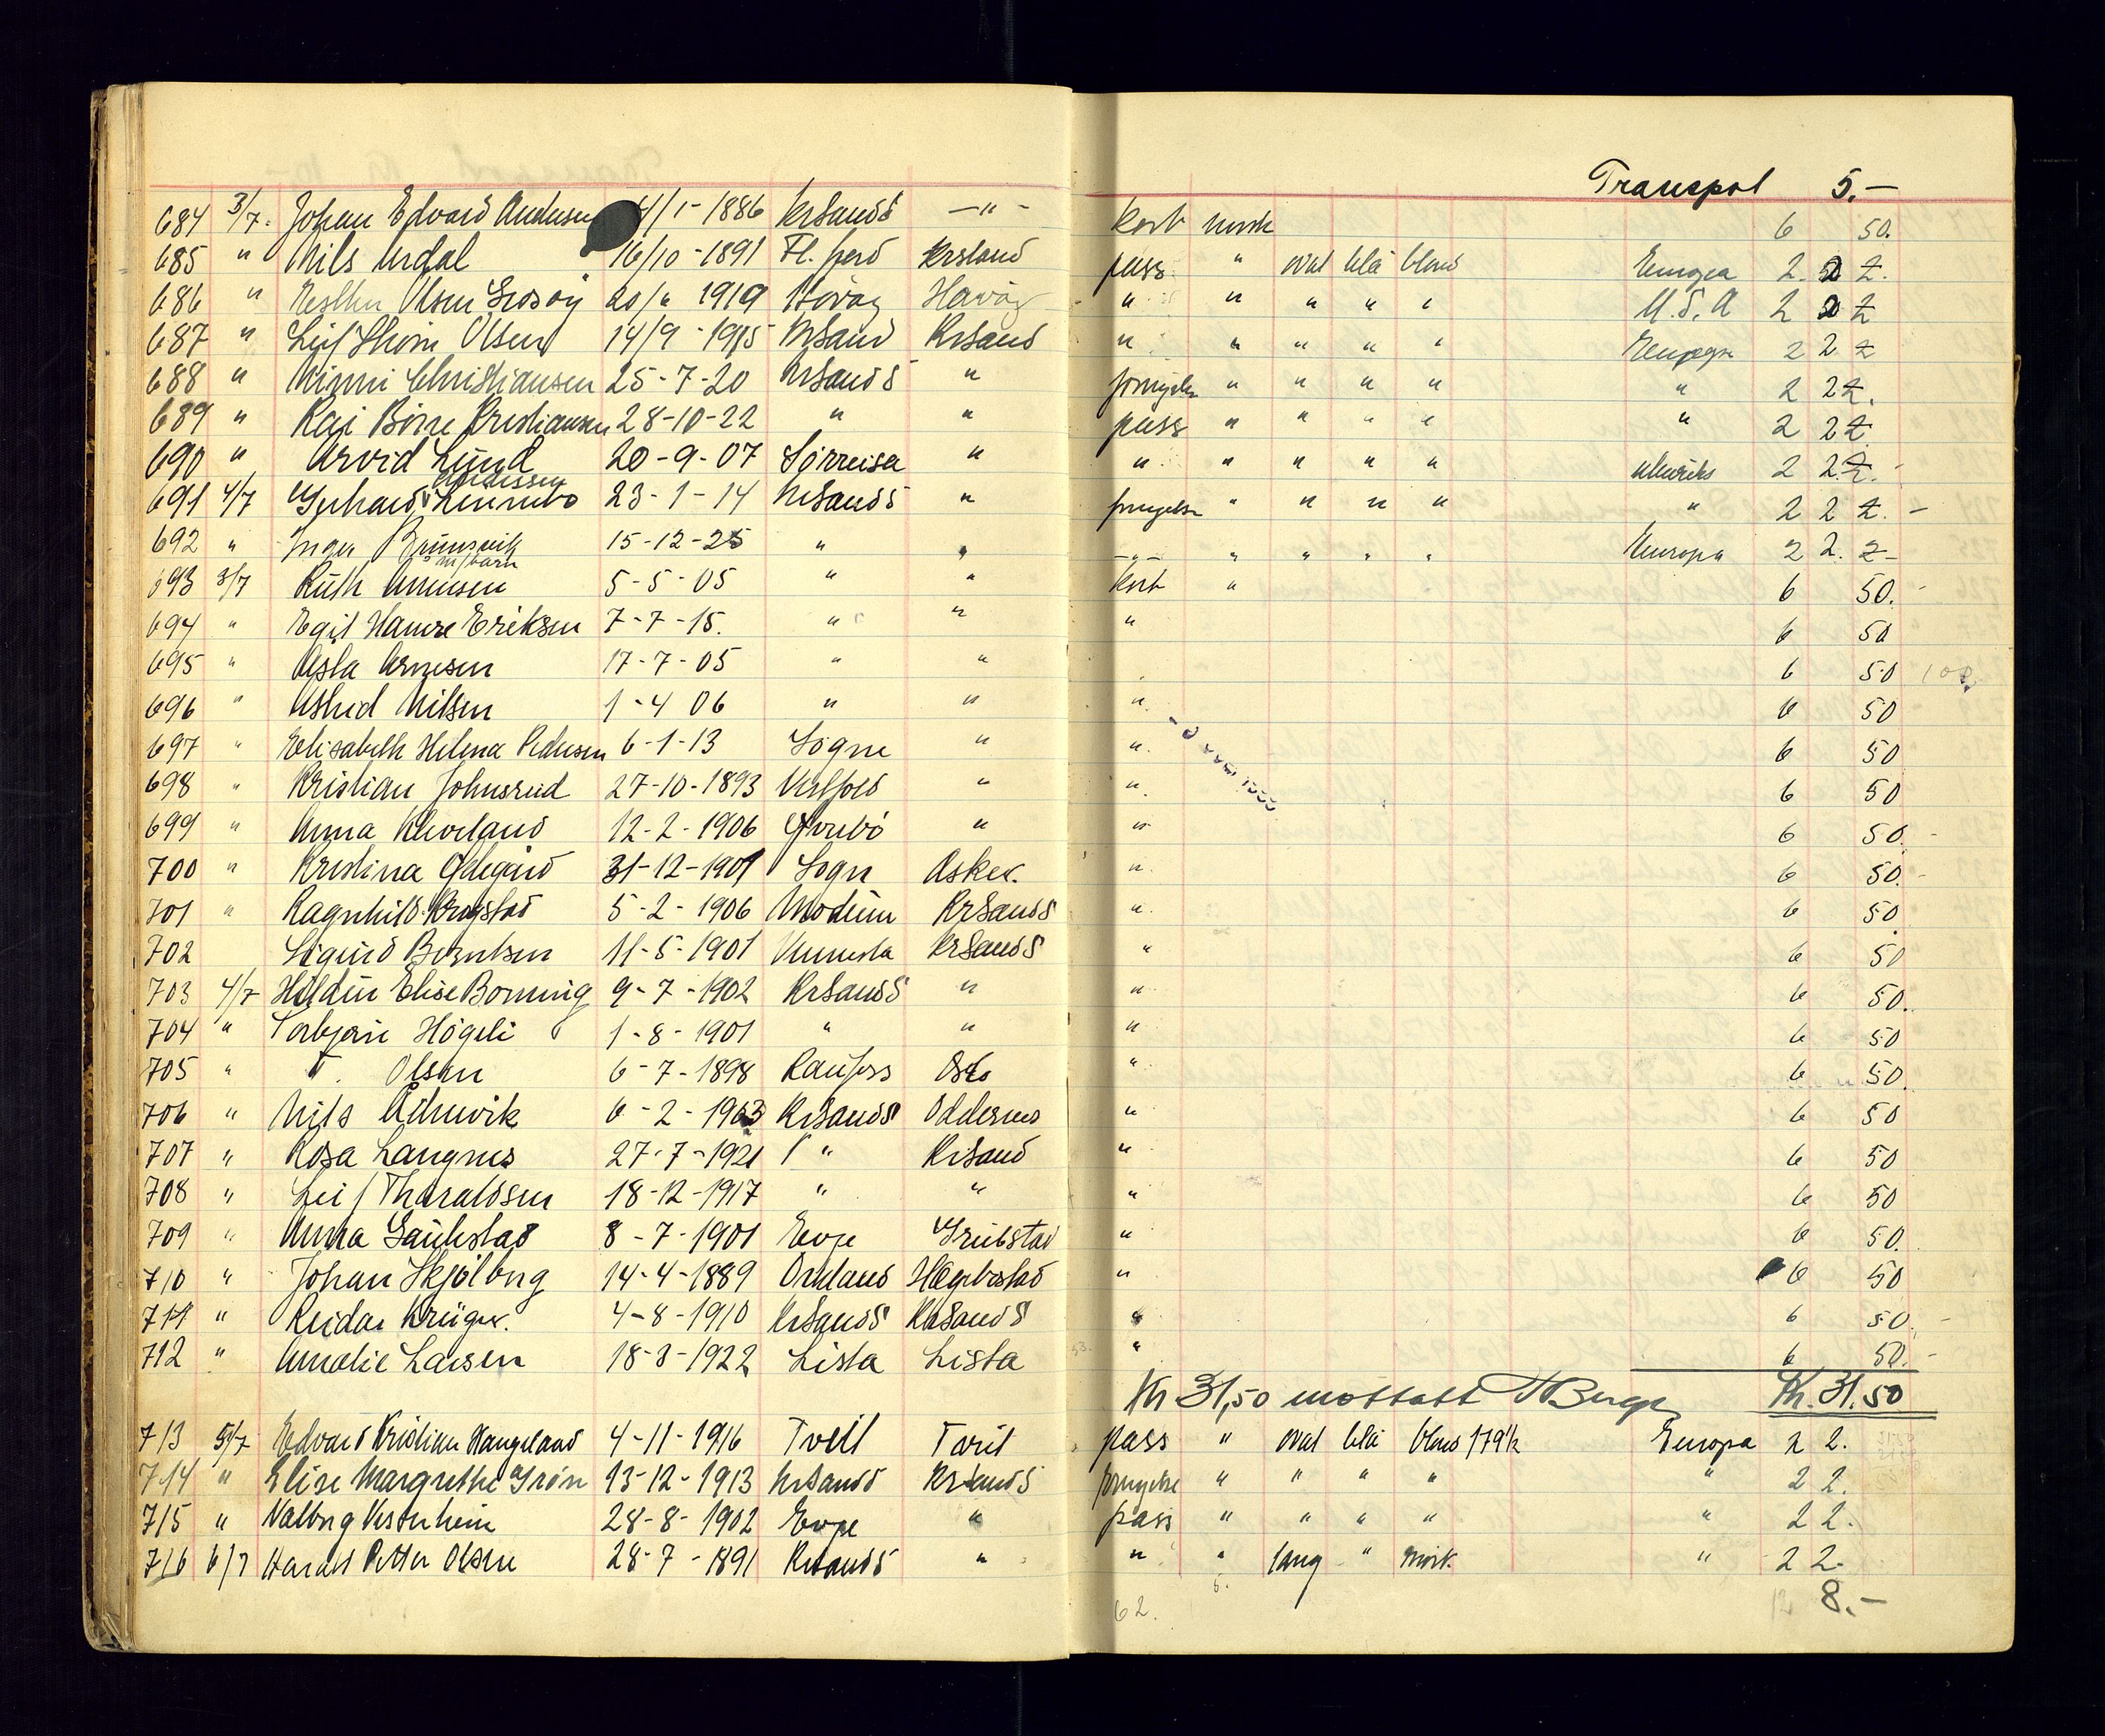 Transport 5.-
684 3/7. Johan Edvard Andersen 4/1-1886 KrSandS -"- kort norsk 6 50.
685 " Nils Urdal 16/10-1891 Fl. fjord Krsand pass " oval blå blond Europa 2 2 2.
686 " Esther Olsen 20/6 1919 Høvåg Høvåg " " " " " U.S.A 2 2 2
687 " Leif Olsen 14/9-1915 KrSand KrSand " " " " " Europa 2 2 2
688 " Minni Christiansen 25-7-20 KrSandS " fornyelse " " " " " 2 2 2.
689 " Kai Børre Kristiansen 28-10-22 " " pass " " " " " 2 2 2
690 " Arvid Lund 20-9-07 Sørreisa " " " " " " 2 2 2.-
Andersen
691 4/7 Gerhard 23-1-14 KrSandS " fornyelse " " " " " 2 2 2.-
692 " Inger Brunsvik 15-12-25 " " -"- " " " " Europa 2 2. 2-
m/barn
693 3/7 Ruth Arnesen 5-5-05 " " kort " 6 50.-
694 " Egil Hamre Eriksen 7-7-15. " " " 6 50
695 " Asta Arnesen 17-7-05 " " 6 50
696 " Astrid Nilsen 1-4 06 " " " 6 50
697 " Elisabeth Helena Pedersen 6-1-13 Søgne " " 6 50
698 " Kristian Johnsrud 27-10-1893 Vestfold " " 6 50
699 " Anna Kleveland 12-2-1906 Øvrebö " " 6 50.-
700 " Kristina Ødegård 31-12-1901 Sogn Asker. " 6 50.-
701 " Ragnhild Krogstad 5-2-1906 Modum KrSandS " 6 50
702 Sigurd Berntsen 11-5-1901 Vennesla KrSandS " 6 50
703 4/7 Hildur Elise Bonning 9-7-1902 KrSandS " " 6 50.
704 " Torbjørn Högeli 1-8-1901 " " " 6 50
705 " T. Olsen 6-7-1898 Raufoss Oslo " 6 50.
706 " Nils 6-2-1903 KrSandS Oddernes " 6 50
707 " Rosa Langnes 27-7-1921 " KrSand " 6 50
708 " Leif Tharaldsen 18-12-1917 " " " 6 50
709 " Anna Gaukstad 8-7-1901 Evje Grimstad " 6 50.
710 " Johan Skjölberg 14-4-1889 Hægebostad " 6 50
711 " Reidar Krüger. 4-8-1910 KrSandS KrSandS " 6 50.-
712 " Amalie Larsen 18-3-1922 Lista Lista " 6 50.-
Kr 31,50 mottatt Kr. 31.50
713 5/7 Edvard Kristian Haugeland 4-11-1916 Tveit Tveit pass " oval blå blond 179½ Europa 2 2.
714 " Elise Margrethe Grøn 13-12-1913 KrSandS KrSandS fornyelse " " " " " 2 2.
715 " Valborg Vesterheim 28-8-1902 Evje " pass " " " " " 2 2.
716 6/7 Harald Petter Olsen 28-7-1891 KrSandS " " " lang " mörk. " 2 2.
62. 12 8.-